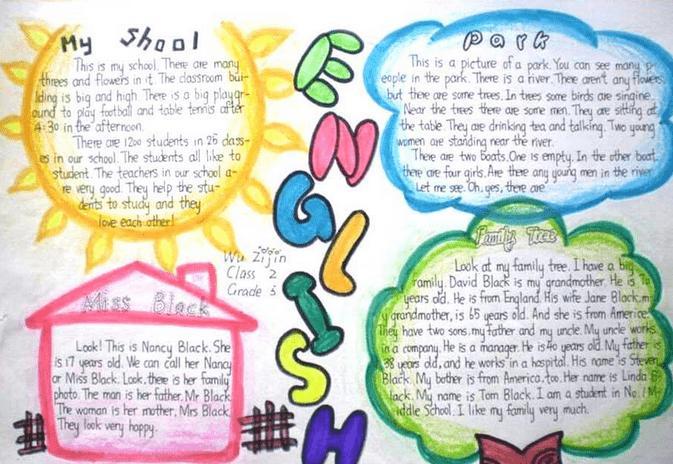 My shool
This is my school. There are many
threes and flowers in it. The classroom bui-
lding is big and high. There is a big playgr-
ound to play football and table tennis after
4:30 in the afternoon.
There are 1200 students in 25 class-
es in our school. The students all like to
student. The teachers in our school a-
re very good. They help the stu-
dents to study and they
love each other!
ENGLISH
Park
This is a picture of a park. You can see many p-
eople in the park. There is a river. There aren't any flowers,
but there are some trees. In trees some birds are singine.
Near the trees there are some men. They are sitting at
the table. They are drinking tea and talking. Two young
women are standing near the river.
There are two boats. One is empty. In the other boat,
there are four girls. Are there any young men in the river
Let me see. Oh, yes, there are
Wu Zijin
Class 2
Grade 3
Miss Black
Look! This is Nancy Black. She
is 17 years old. We can call her Nancy
or Miss Black. Look, there is her family
photo. The man is her father, Mr Black
The woman is her mother, Mrs Black.
They look very happy.
Family Tree
Look at my family tree. I have a big
family. David Black is my grandmother. He is
years old. He is from England. His wife Jane Black, m
y grandmother, is 65 years old. And she is from Americe.
They have two sons, my father and my uncle. My uncle works
in a company. He is a manager. He is 40 years old. My father is
38 years old, and he works in a hospital. His name is Steven
Black. My bother is from America, too. Her name is Linda B
lack. My name is Tom Black. I am a student in No. 1 M-
iddle School. I like my family very much.